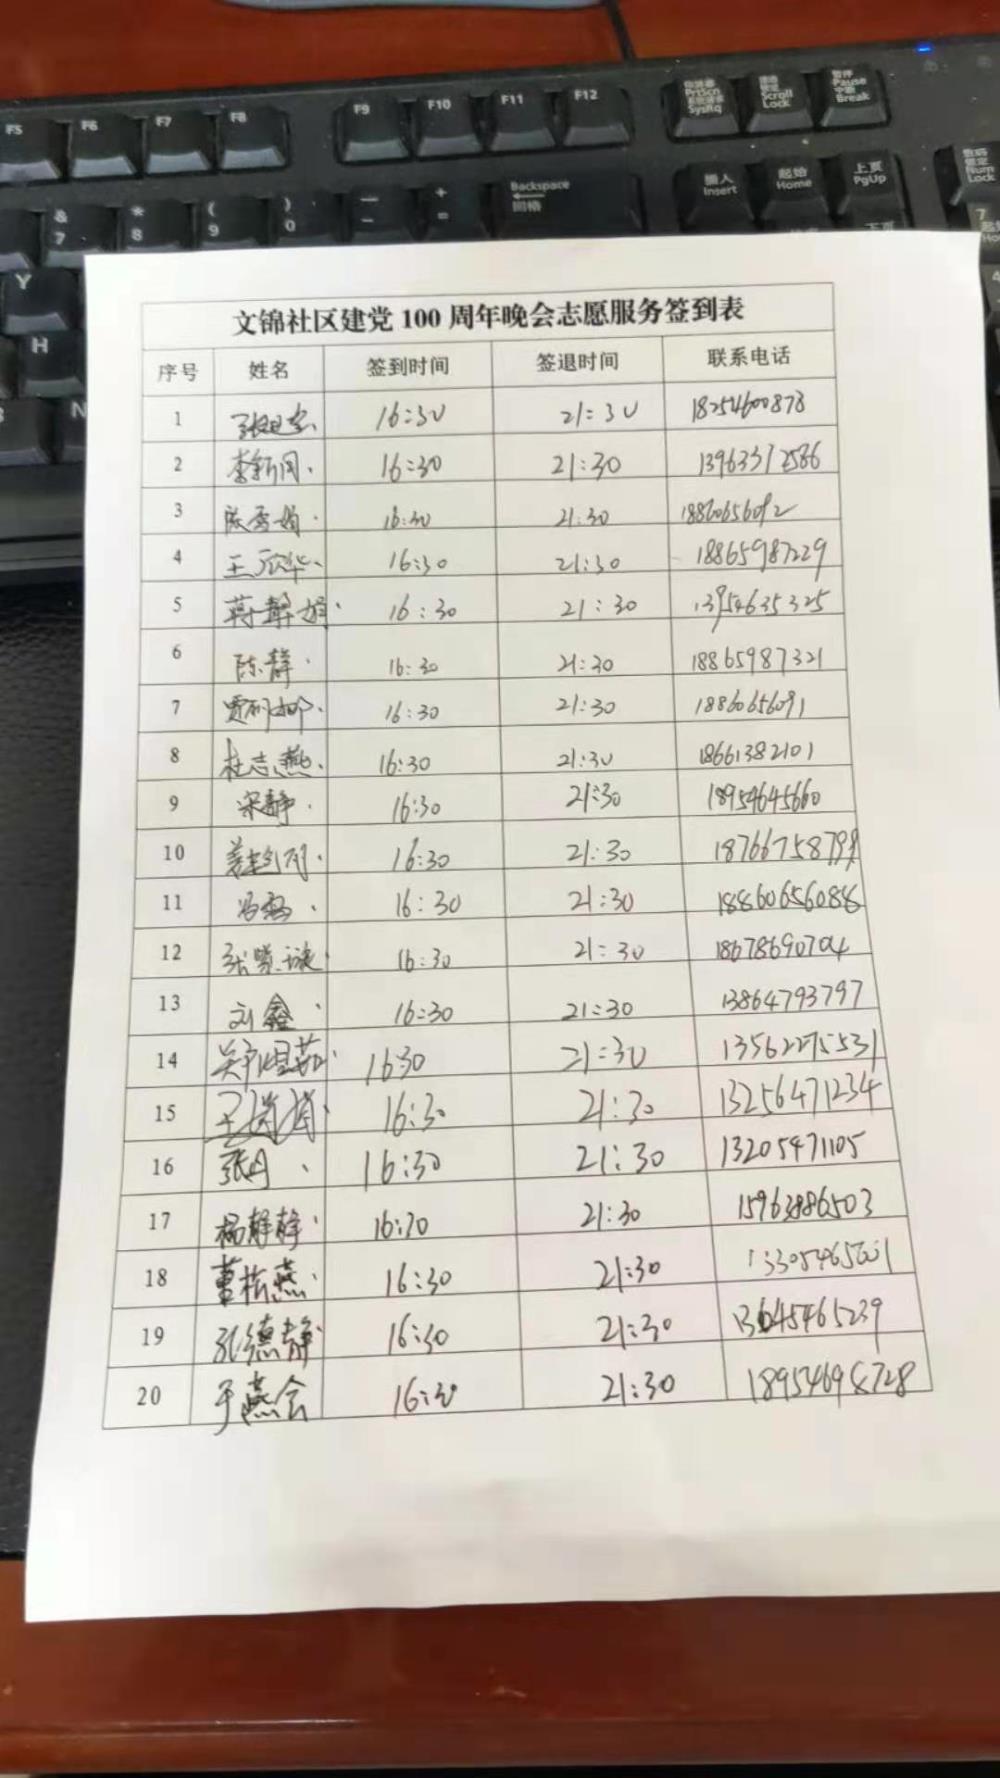 F5 F6 F7 F8 F9 F10 F11 F12 PrtScn SysRq Scroll Lock Pause Break
& 7 * 8 ( 9 ) 0 + = Backspace 回格 插入 Insert 起始 Home 上页 PgUp Num Lock
Y
H
N
文锦社区建党 100 周年晚会志愿服务签到表
序号 姓名 签到时间 签退时间 联系电话
1 16:30 21:30 18254600878
2 李新闻 16:30 21:30 13963312586
3 16:30 21:30 18860656092
4 王欣华 16:30 21:30 18865987229
5 蒋静娟 16:30 21:30 13954635325
6 陈静 16:30 21:30 18865987321
7 16:30 21:30 18860656091
8 杜志燕 16:30 21:30 18661382101
9 宋静 16:30 21:30 18954645660
10 16:30 21:30
11 冯磊 16:30 21:30 18860656088
12 16:30 21:30 18678690704
13 刘鑫 16:30 21:30 13864793797
14 16:30 21:30 13562275531
15 16:30 21:30 13256471234
16 张丹 16:30 21:30 13205471105
17 杨静静 16:30 21:30 15963886503
18 董松燕 16:30 21:30
19 张德静 16:30 21:30 13645465239
20 于燕会 16:30 21:30 18954698728